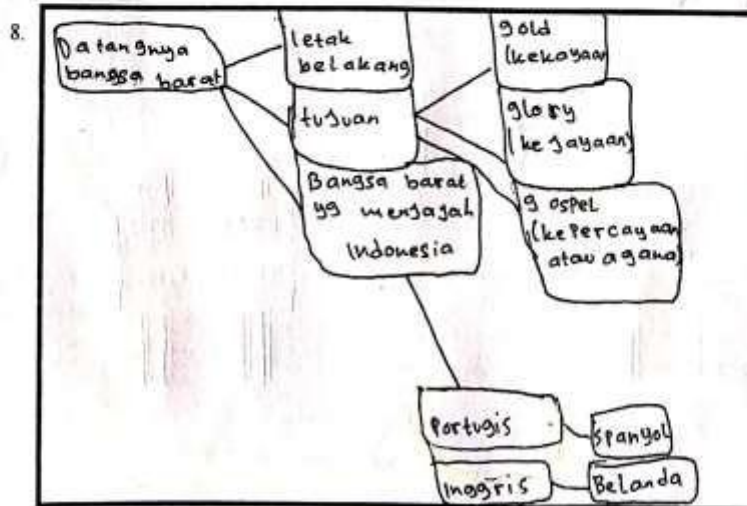 8.
Datangnya
bangsa barat
letak
belakang
tujuan
Bangsa barat
yg menjajah
Indonesia
gold
(kekayaan
glory
(kejayaan)
gospel
(kepercayaan
atau agama)
Portugis
spanyol
Inggris
Belanda